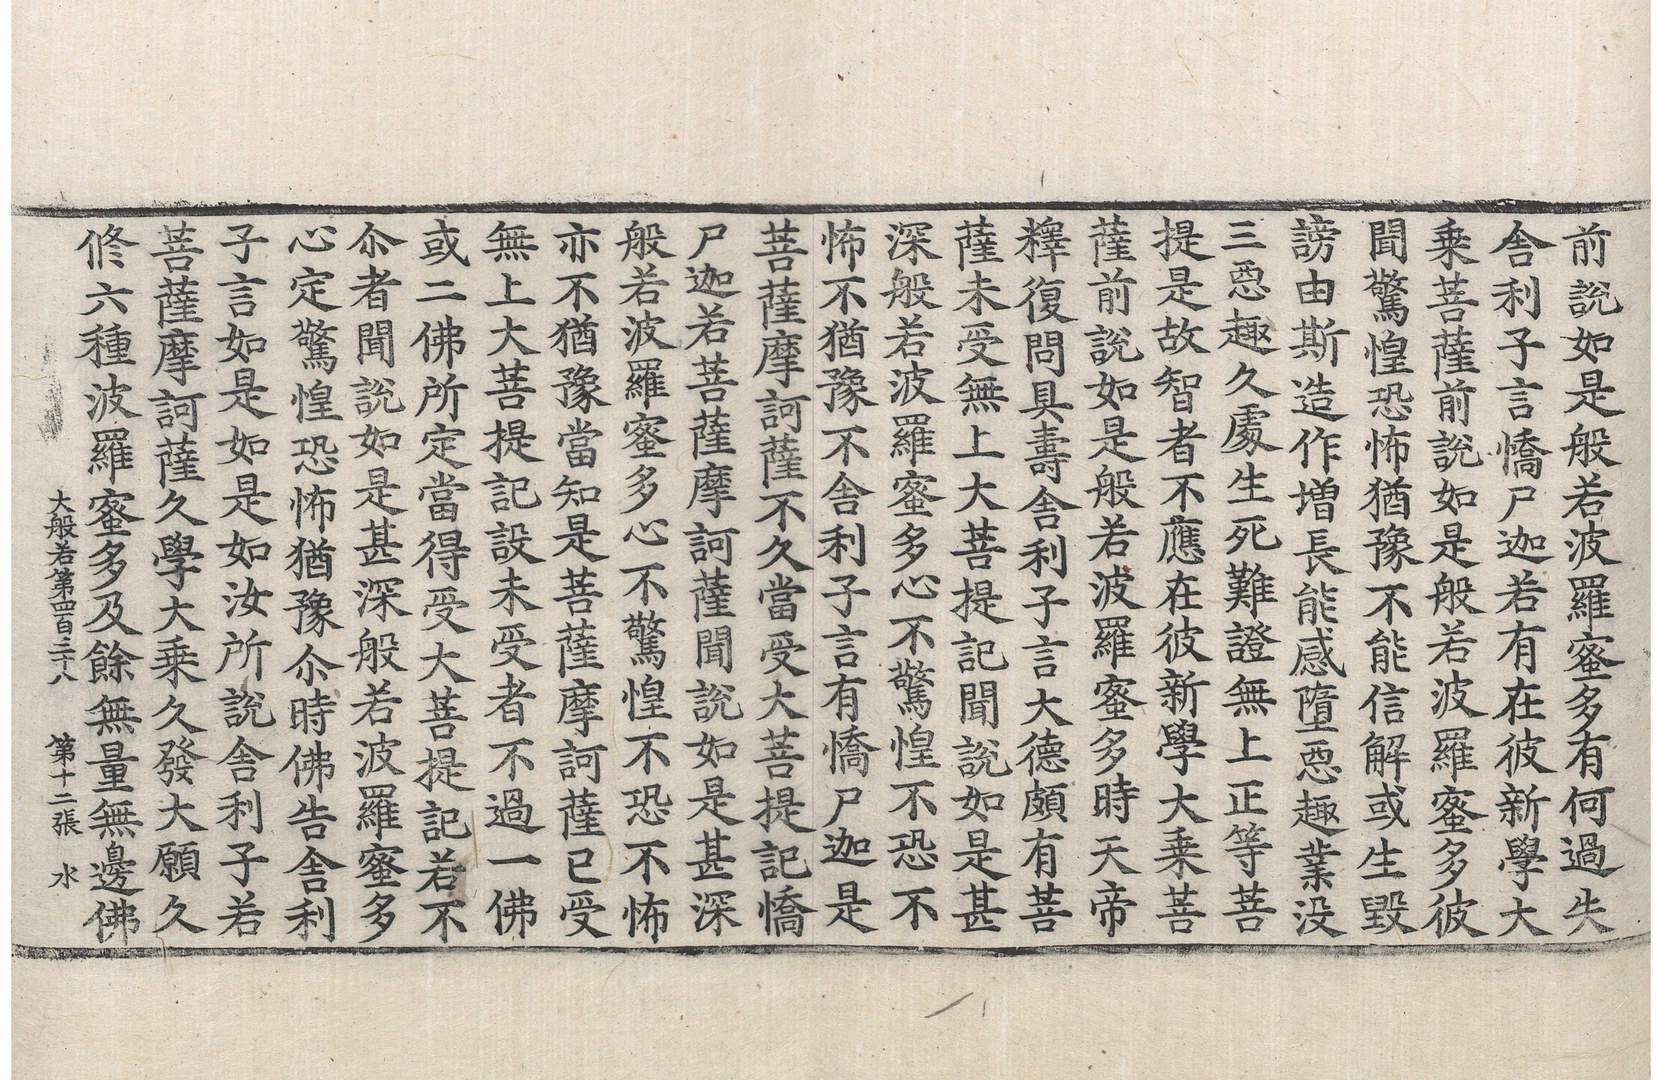 前說如是般若波羅蜜多有何過失
舍利子言憍尸迦若有在彼新學大
乘菩薩前說如是般若波羅蜜多彼
聞驚惶恐怖猶豫不能信解或生毀
謗由斯造作增長能感墮惡趣業沒
三惡趣久處生死難證無上正等菩
提是故智者不應在彼新學大乘菩
薩前說如是般若波羅蜜多時天帝
釋復問具壽舍利子言大德頗有菩
薩未受無上大菩提記聞說如是甚
深般若波羅蜜多心不驚惶不恐不
怖不猶豫不舍利子言有憍尸迦是
菩薩摩訶薩不久當受大菩提記憍
尸迦若菩薩摩訶薩聞說如是甚深
般若波羅蜜多心不驚惶不恐不怖
亦不猶豫當知是菩薩摩訶薩已受
無上大菩提記設未受者不過一佛
或二佛所定當得受大菩提記若不
尒者聞說如是甚深般若波羅蜜多
心定驚惶恐怖猶豫尒時佛告舍利
子言如是如是如汝所說舍利子若
菩薩摩訶薩久學大乘久發大願久
修六種波羅蜜多及餘無量無邊佛
大般若第四百三十八 第十二張 水